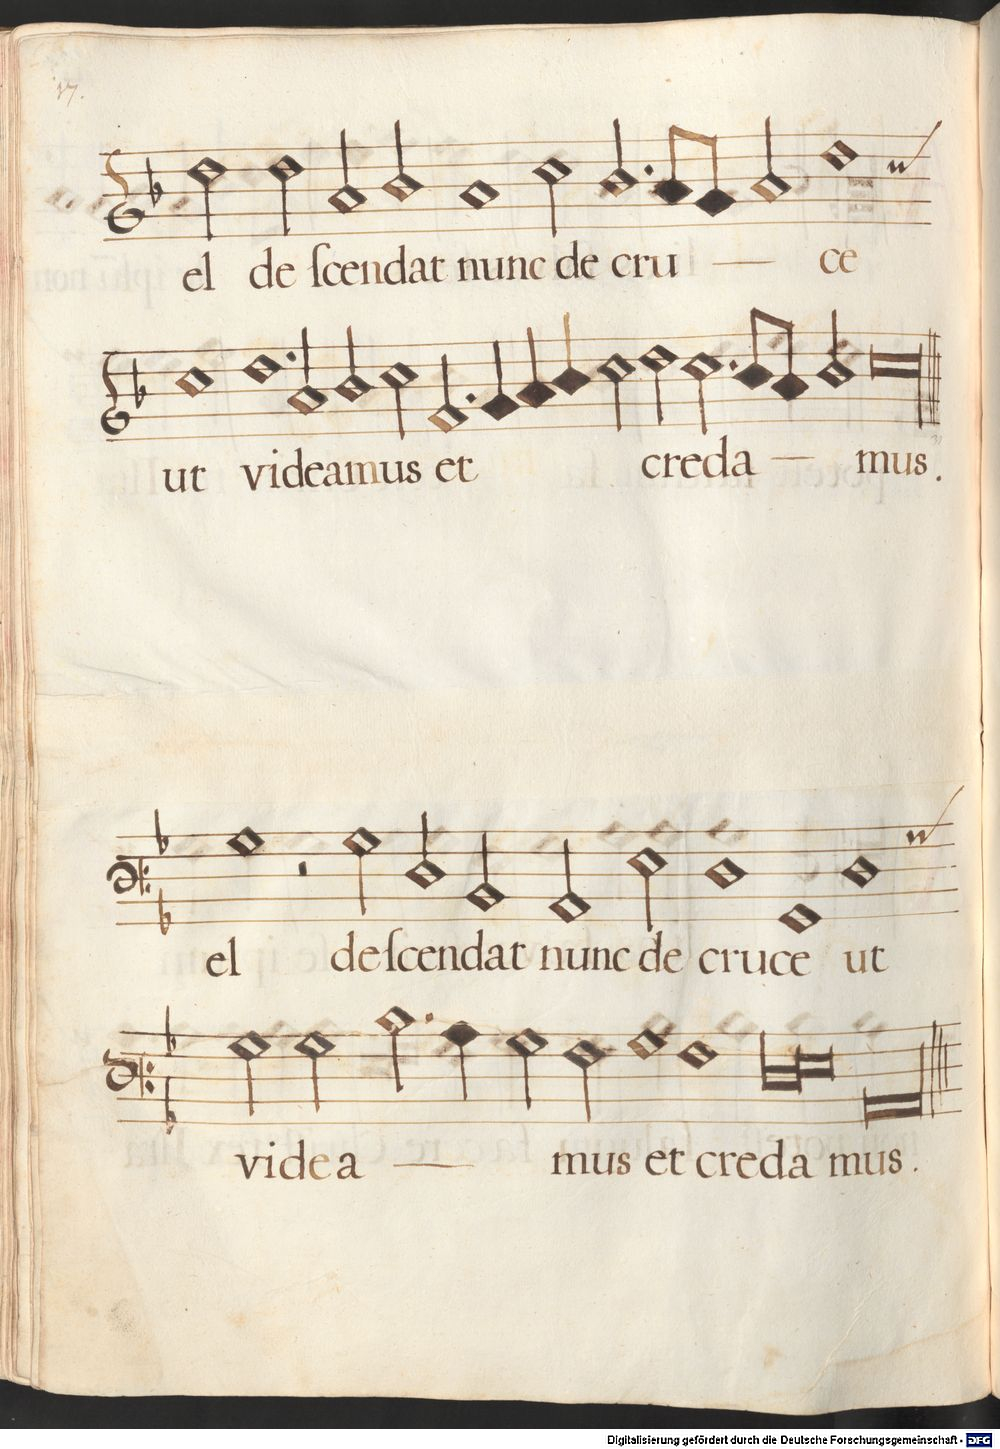 17.
el de ſcendat nunc de cru — ce
ut videamus et creda — mus.
el deſcendat nunc de cruce ut
videa — mus et creda mus.
Digitalisierung gefördert durch die Deutsche Forschungsgemeinschaft - DFG